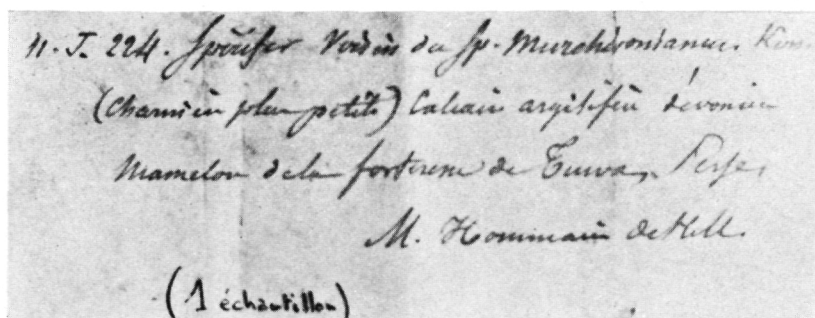 11. J. 224. Spirifer Voisin du Sp. Murchisonianus. Kon.
(Charnière plus petite) Calcaire argilifère dévonien
Mamelon de la forteresse de Perse,
M. Hommaire de Hell.
(1 échantillon)